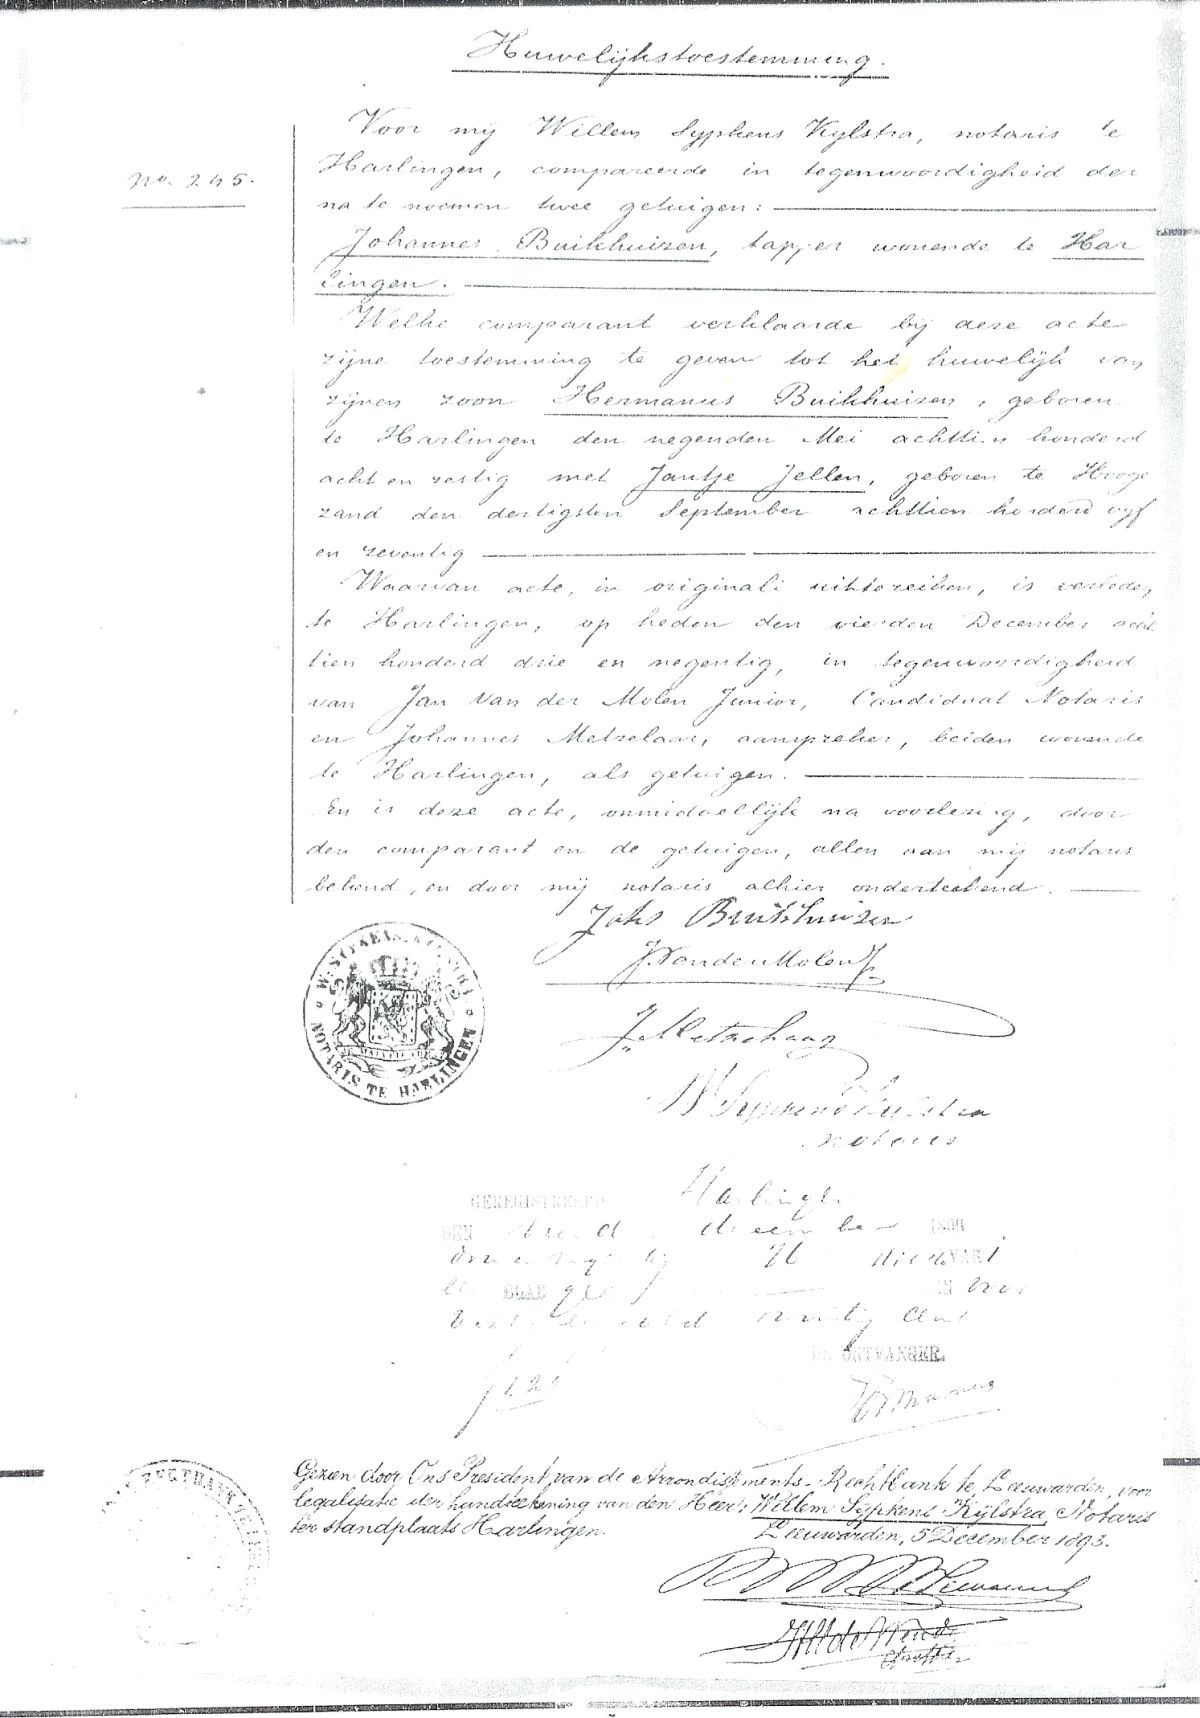 Huwelijkstoestemming.
Voor mij Willem Sypkens Kylstra, notaris te
No. 245.
Harlingen, compareerde in tegenwoordigheid der
na te noemen twee getuigen:
Johannes Buikhuizen, tapper wonende te Har
lingen.
Welke comparant verklaarde bij deze acte
zijne toestemming te geven tot het huwelijk van
zijnen zoon Hermanus Buikhuizen, geboren
te Harlingen den negenden Mei achttien honderd
acht en zestig met Jantje Jellen, geboren te Hooge
zand den dertigsten September achttien honderd vijf
en zeventig
Waarvan acte, in originali uittereiken, is verleden
te Harlingen, op heden den vierden December acht
tien honderd drie en negentig, in tegenwoordigheid
van Jan van der Molen Junior, Candidaat Notaris
en Johannes Metzelaar, aanspreker, beiden wonende
te Harlingen, als getuigen.
En is deze acte, onmiddellijk na voorlezing, door
den comparant en de getuigen, allen aan mij notaris
bekend, en door mij notaris alhier onderteekend.
Johs Buikhuizen
J. Van der Molen Jr
J. Metzelaar
W Sypkens Kylstra
notaris
NOTARIS TE HARLINGEN
GEREGISTREERD Harlingen
DEN december
BLAD
cent
DE ONTVANGER.
Gezien door Ons President van de Arrondissements-Rechtbank te Leeuwarden, voor
legalisatie der handteekening van den Heer: Willem Sypkens Kijlstra, Notaris
ter standplaats Harlingen.
Leeuwarden, 5 December 1893.